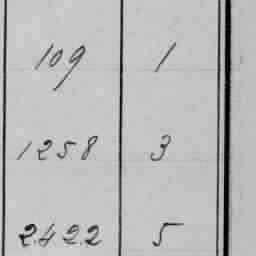 109 1
1258 3
2422 5